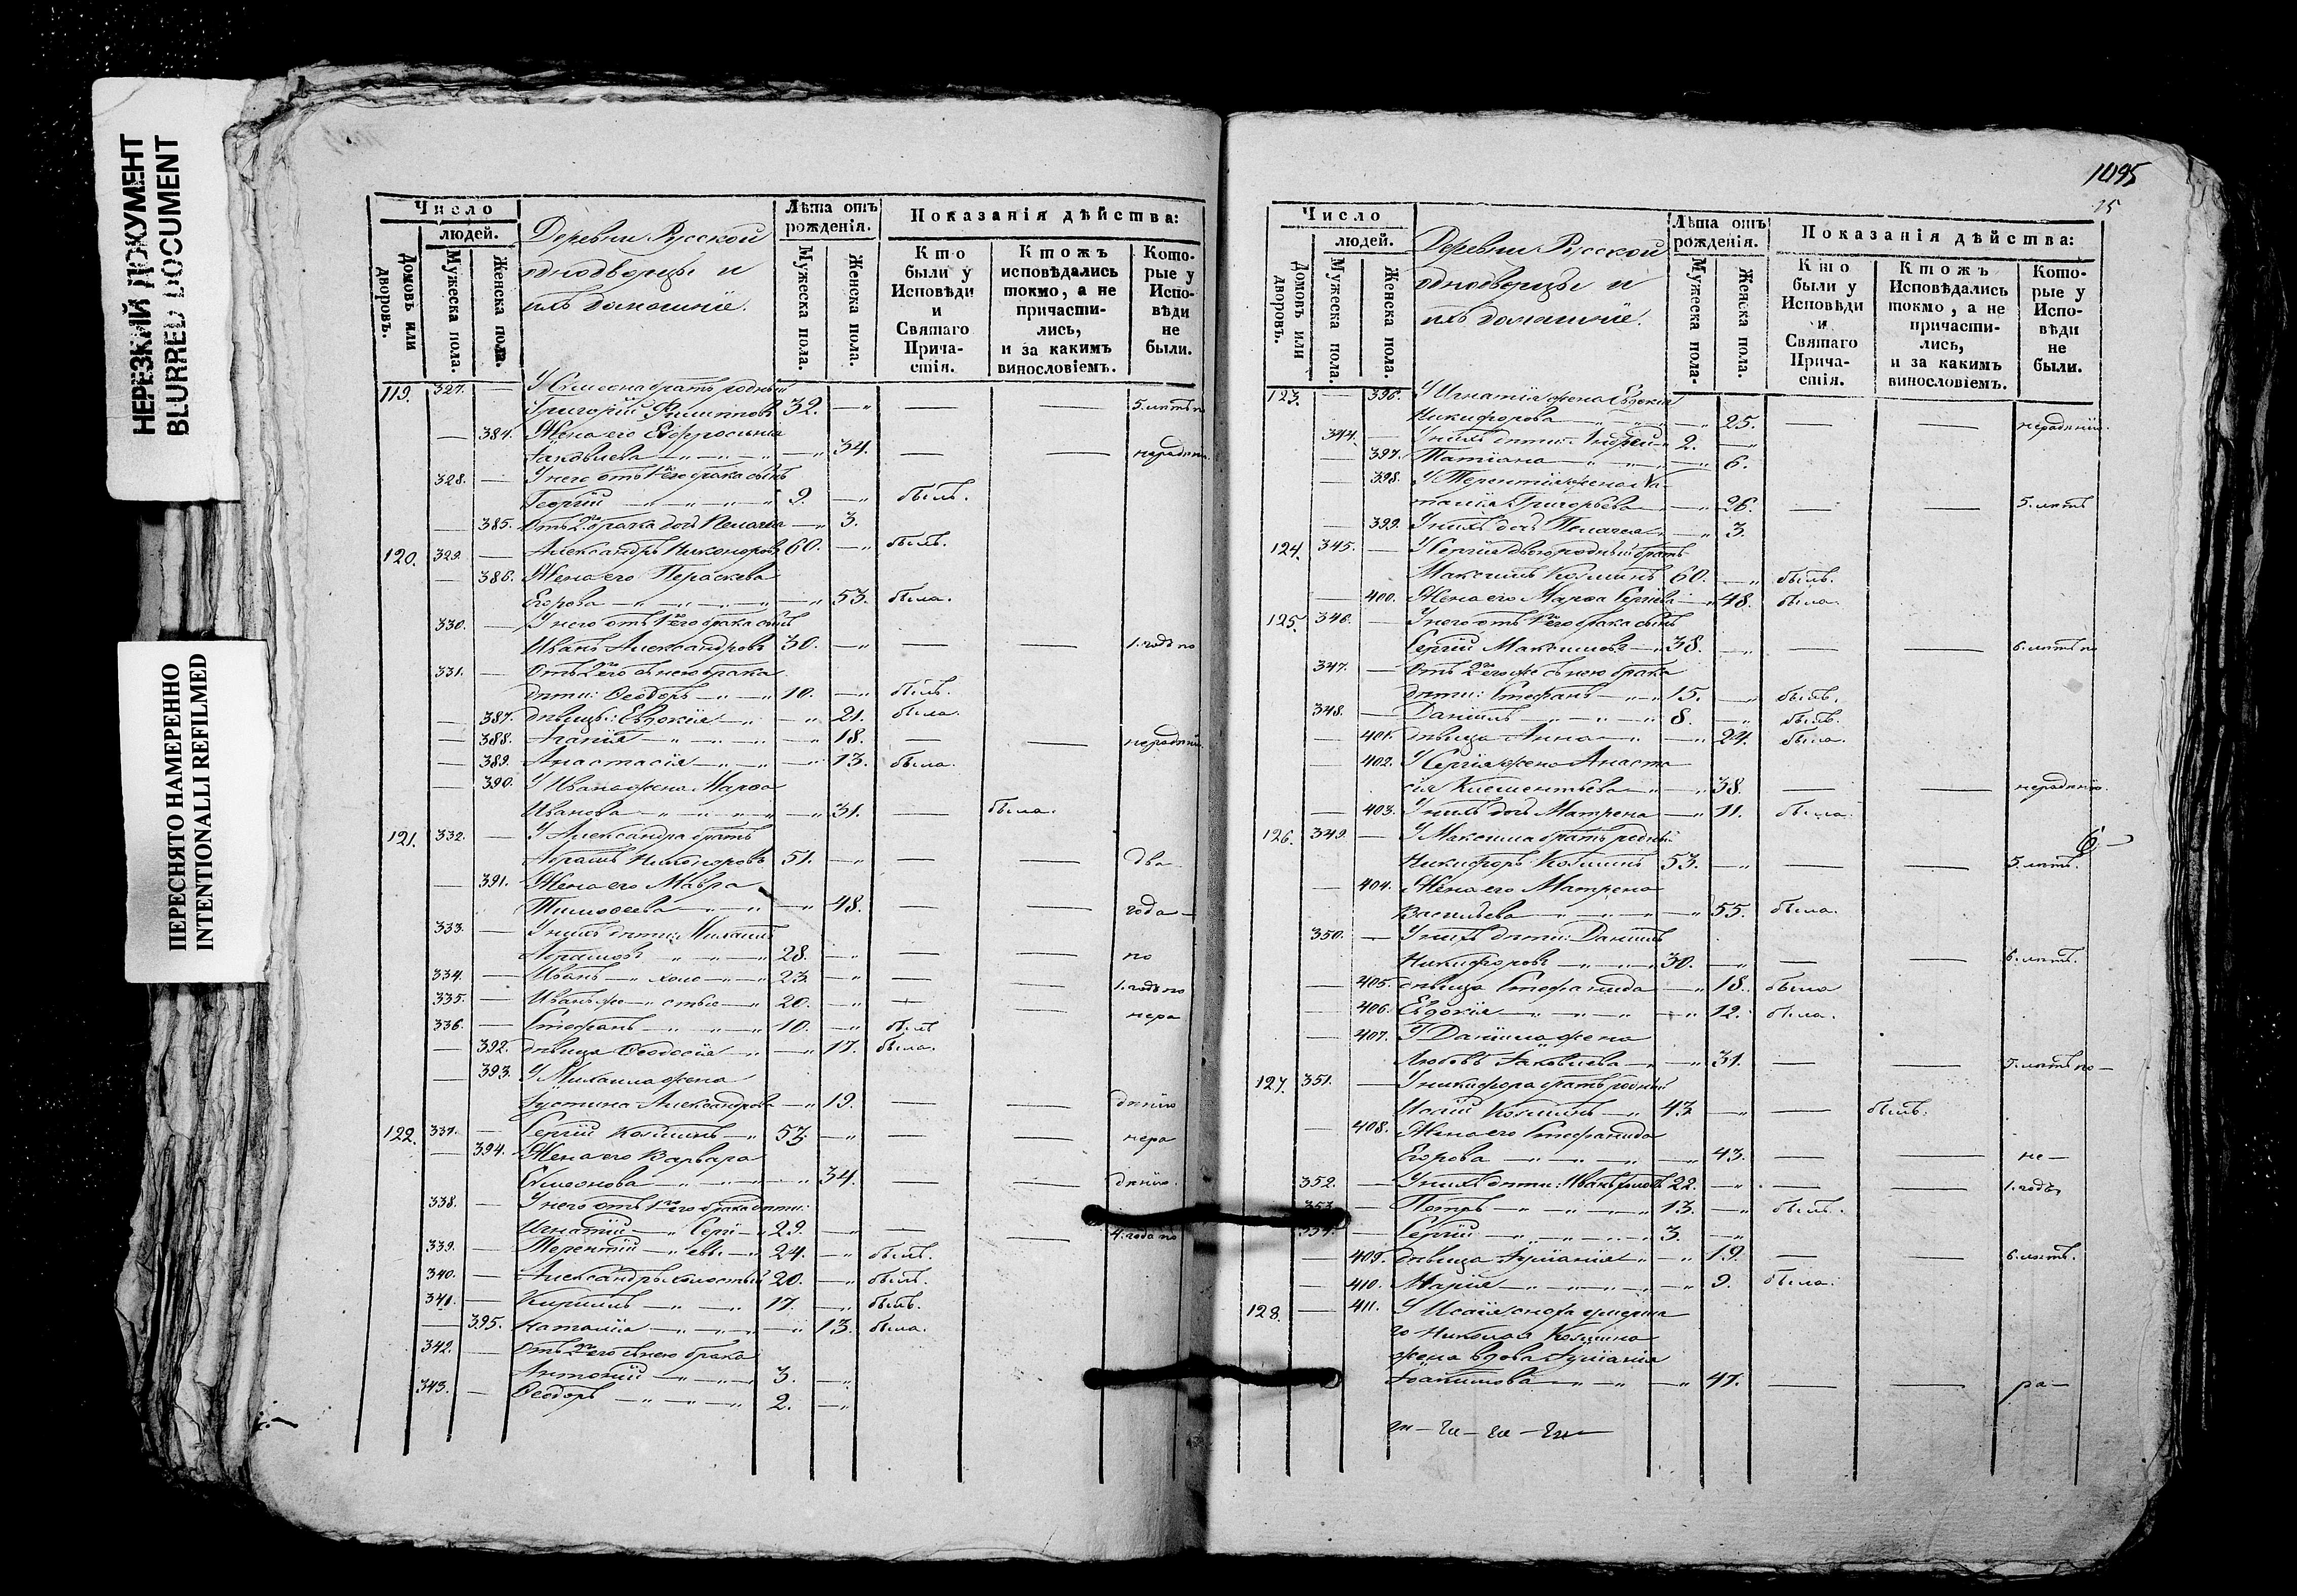 НЕРЕЗКИЙ ДОКУМЕНТ
BLURRED DOCUMENT
ПЕРЕСНЯТО НАМЕРЕННО
INTENTIONALLI REFILMED
Число
людей.
Домовъ или дворовъ.
Мужеска пола.
Женска пола.
Деревни Русской
однодворцы и
ихъ домашніе.
Лѣта отъ рожденія.
Мужеска пола.
Женска пола.
Показанія дѣйства:
Кто были у Исповѣди и Святаго Прича-стія.
Ктожъ исповѣдались токмо, а не причасти-лись, и за какимъ винословіемъ.
Кото-рые у Испо-вѣди не были.
119. 327. — У Симеона братъ родный
Григорій Филиповъ 32. — — — 5. лѣтъ по
— 384. Жена его Евфросинія
Іаковлева — 34. — — нерадѣнію
328. — У него отъ 1го его брака сынъ
Георгій 9. — былъ.
— 385. Отъ 2го брака дочь Пелагея — 3.
120. 329. — Александръ Никоноровъ 60. — былъ.
— 386. Жена его Параскева
Егорова — 53. была.
330. — У него отъ 1го его брака сынъ
Иванъ Александровъ 30. — — — 1. годъ по
331. — Отъ 2го его съ нею брака
дѣти: Ѳеодоръ — 10. — былъ.
— 387. дѣвицы: Евдокія — 21. была.
— 388. Агапія — 18. — — нерадѣнію
— 389. Анастасія — 13. была.
— 390. У Ивана жена Марѳа
Иванова — 31. — была.
121. 332. — У Александра братъ
Абрамъ Никоноровъ 51. — — — два
— 391. Жена его Мавра
Тимоѳеева — 48. — — года —
333. — У нихъ дѣти: Михаилъ
Абрамовъ — 28. — — — по
334. — Иванъ — холо — 23. — — — 1. годъ по
335. — Иванъ же — стые — 20. — — — нера
336. — Стефанъ — 10. — былъ
— 392. дѣвица Ѳеодосія — 17. была.
— 393. У Михаила жена
Іустина Александрова — 19. — — дѣнію
122. 337. — Сергій Козминъ — 53. — — — нера
— 394. Жена его Варвара
Симеонова — 34. — — дѣнію.
338. — У него отъ 1го его брака дѣти:
Игнатій — Серги — 29. — — — 4. года по
339. — Терентій — евы — 24. — былъ.
340. — Александръ холостый 20. — былъ.
341. — Кирилъ — 17. — былъ.
— 395. Наталія — 13. была.
342. — Отъ 2го его съ нею брака
Антоній — 3. —
343. — Ѳеодоръ — 2. —
1495
25
Число
людей.
Домовъ или дворовъ.
Мужеска пола.
Женска пола.
Деревни Русской
однодворцы и
ихъ домашніе.
Лѣта отъ рожденія.
Мужеска пола.
Женска пола.
Показанія дѣйства:
Кто были у Исповѣди и Святаго Прича-стія.
Ктожъ Исповѣдались токмо, а не причасти-лись, и за какимъ винословіемъ.
Кото-рые у Испо-вѣди не были.
123. — 396. У Игнатія жена Евдокія
Никифорова — 25. — — нерадѣнію.
344. — У нихъ дѣти: Андрей — 2. —
— 397. Татіана — 6.
— 398. У Терентія жена На-
талія Григорьева — 26. — — 5. лѣтъ
— 399. У нихъ дочь Пелагея — 3.
124. 345. — У Сергія двоюродный братъ
Максимъ Козминъ 60. — былъ.
— 400. Жена его Марѳа Сергіева — 48. была.
125. 346. — У него отъ 1го его брака сынъ
Сергій Максимовъ — 38. — — — 6. лѣтъ по
347. — Отъ 2го его же съ нею брака
дѣти: Стефанъ — 15. — былъ.
348. — Даніилъ — 8. — былъ.
— 401. дѣвица Анна — 24. была.
— 402. У Сергія жена Анаста
сія Климентьева — 38. — — нерадѣнію.
— 403. У нихъ дочь Матрена — 11. была.
126. 349. — У Максима братъ родный
Никифоръ Козминъ 53. — — — 5. лѣтъ.
— 404. Жена его Матрена
Васильева — 55. была.
350. — У нихъ дѣти: Даніилъ
Никифоровъ — 30. — — — 6. лѣтъ.
— 405. дѣвица Стефанида — 18. была
— 406. Евдокія — 12. была.
— 407. У Даніила жена
Любовь Іаковлева — 31. — — 5. лѣтъ по —
127. 351. — У Никифора братъ родный
Исаій Козминъ — 43. — — былъ.
— 408. Жена его Стефанида
Егорова — 43. — — не —
352. — У нихъ дѣти: Иванъ холост. 22. — — — 1. годъ
353. — Петръ — 13. — былъ.
354. — Сергій — 3. —
— 409. дѣвица Іуліанія — 19. — — 6. лѣтъ.
— 410. Марія — 9. была.
128. — 411. У Исаія сноха умерша
го Николая Козмина
жена вдова Іуліанія
Іоакимова — 47. — — ра —